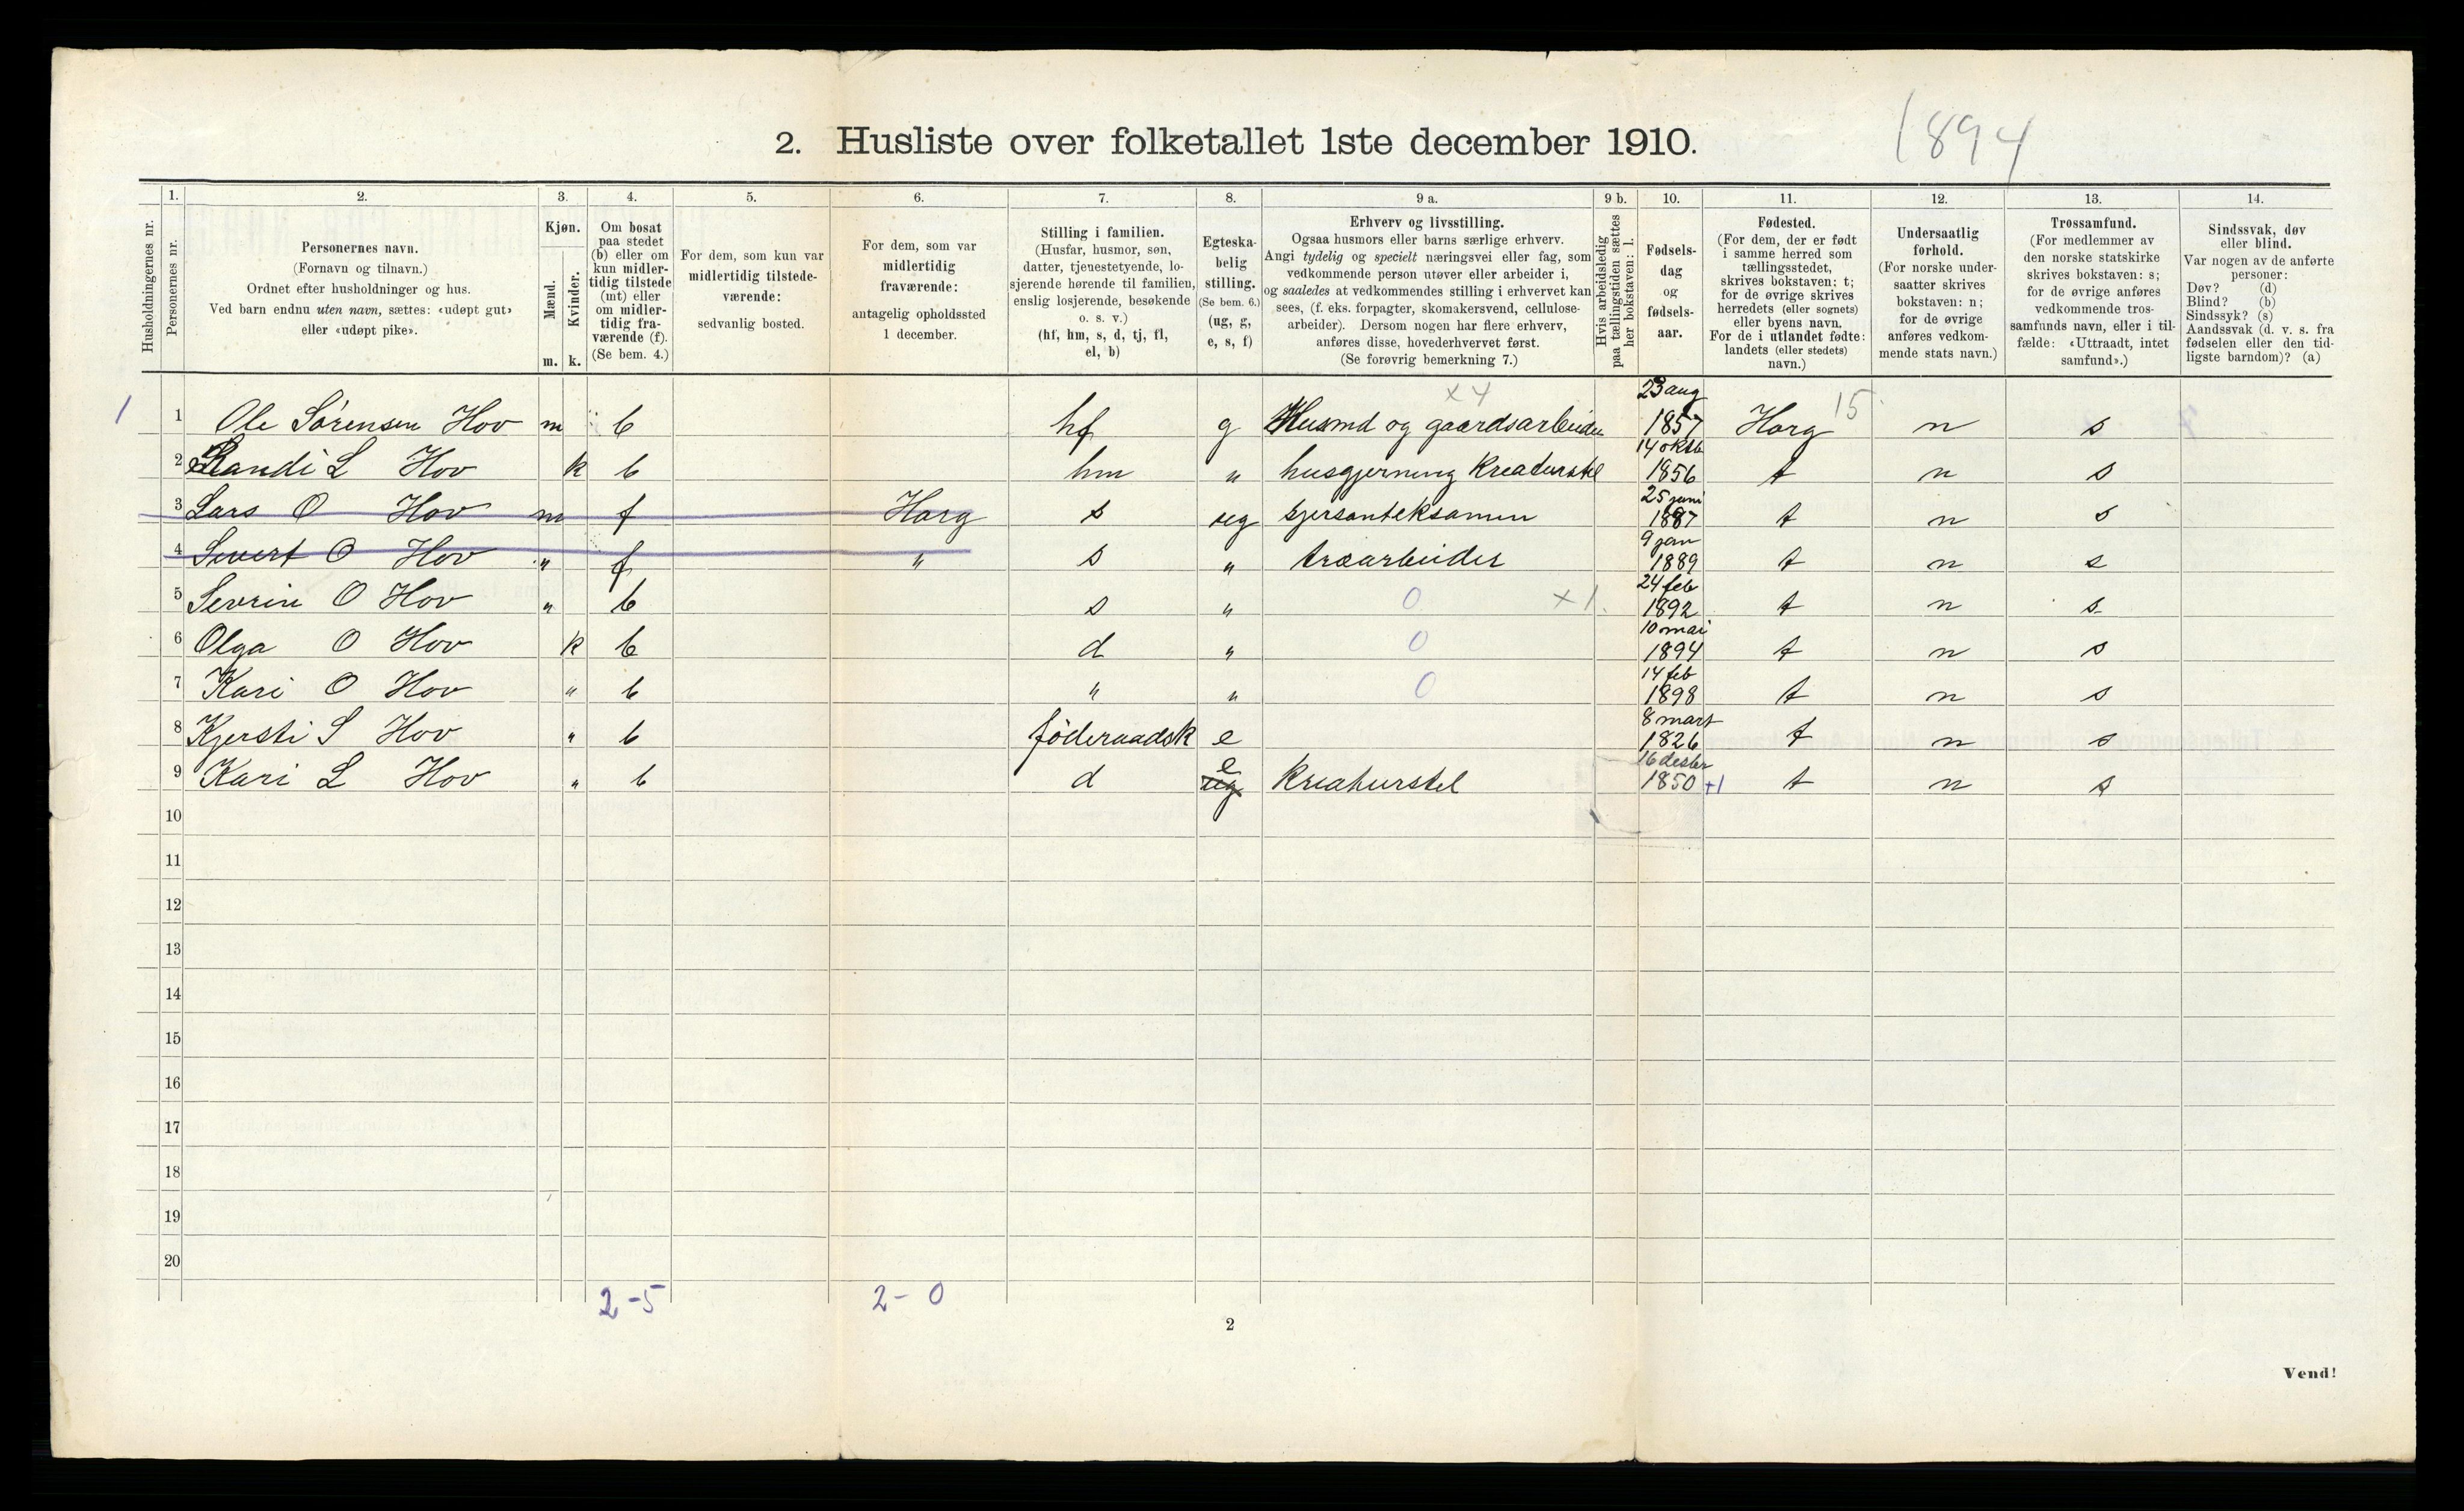 2. Husliste over folketallet 1ste december 1910.
1894
Husholdningernes nr.
1.
Personernes nr.
2.
Personernes navn.
(Fornavn og tilnavn.)
Ordnet efter husholdninger og hus.
Ved barn endnu uten navn, sættes: «udøpt gut»
eller «udøpt pike».
3.
Kjøn.
Mænd.
m.
Kvinder.
k.
4.
Om bosat
paa stedet
(b) eller om
kun midler-
tidig tilstede
(mt) eller
om midler-
tidig fra-
værende (f).
(Se bem. 4.)
5.
For dem, som kun var
midlertidig tilstede-
værende:
sedvanlig bosted.
6.
For dem, som var
midlertidig
fraværende:
antagelig opholdssted
1 december.
7.
Stilling i familien.
(Husfar, husmor, søn,
datter, tjenestetyende, lo-
sjerende hørende til familien,
enslig losjerende, besøkende
o. s. v.)
(hf, hm, s, d, tj, fl,
el, b)
8.
Egteska-
belig
stilling.
(Se bem. 6.)
(ug, g,
e, s, f)
9 a.
Erhverv og livsstilling.
Ogsaa husmors eller barns særlige erhverv.
Angi tydelig og specielt næringsvei eller fag, som
vedkommende person utøver eller arbeider i,
og saaledes at vedkommendes stilling i erhvervet kan
sees, (f. eks. forpagter, skomakersvend, cellulose-
arbeider). Dersom nogen har flere erhverv,
anføres disse, hovederhvervet først.
(Se forøvrig bemerkning 7.)
9 b.
Hvis arbeidsledig
paa tællingstiden sættes
her bokstaven: l.
10.
Fødsels-
dag
og
fødsels-
aar.
11.
Fødested.
(For dem, der er født
i samme herred som
tællingsstedet,
skrives bokstaven: t;
for de øvrige skrives
herredets (eller sognets)
eller byens navn.
For de i utlandet fødte:
landets (eller stedets)
navn.)
12.
Undersaatlig
forhold.
(For norske under-
saatter skrives
bokstaven: n;
for de øvrige
anføres vedkom-
mende stats navn.)
13.
Trossamfund.
(For medlemmer av
den norske statskirke
skrives bokstaven: s;
for de øvrige anføres
vedkommende tros-
samfunds navn, eller i til-
fælde: «Uttraadt, intet
samfund».)
14.
Sindssvak, døv
eller blind.
Var nogen av de anførte
personer:
Døv? (d)
Blind? (b)
Sindssyk? (s)
Aandssvak (d. v. s. fra
fødselen eller den tid-
ligste barndom)? (a)
x 4
1 1 Ole Sørensen Hov m b hf g Husmd og gaardsarbeider 23 aug 1857 Horg 15 n s
2 Randi L Hov k b hm " husgjerning kreaturstel 14 oktb 1856 t n s
3 Lars O Hov m f Horg s ug sjersanteksamen 25 juni 1887 t n s
4 Sivert O Hov " f " s " træarbeider 9 jan 1889 t n s
5 Sevrin O Hov " b s " 0 x 1. 24 feb 1892 t n s
6 Olga O Hov k b d " 0 10 mai 1894 t n s
7 Kari O Hov " b " " 0 14 feb 1898 t n s
8 Kjersti S Hov " b föderaadsk e 8 mars 1826 t n s
9 Kari L Hov " b d ug e Kreaturstel 16 desbr 1850 +1 t n s
10
11
12
13
14
15
16
17
18
19
20
2-5 2-0
2
Vend!